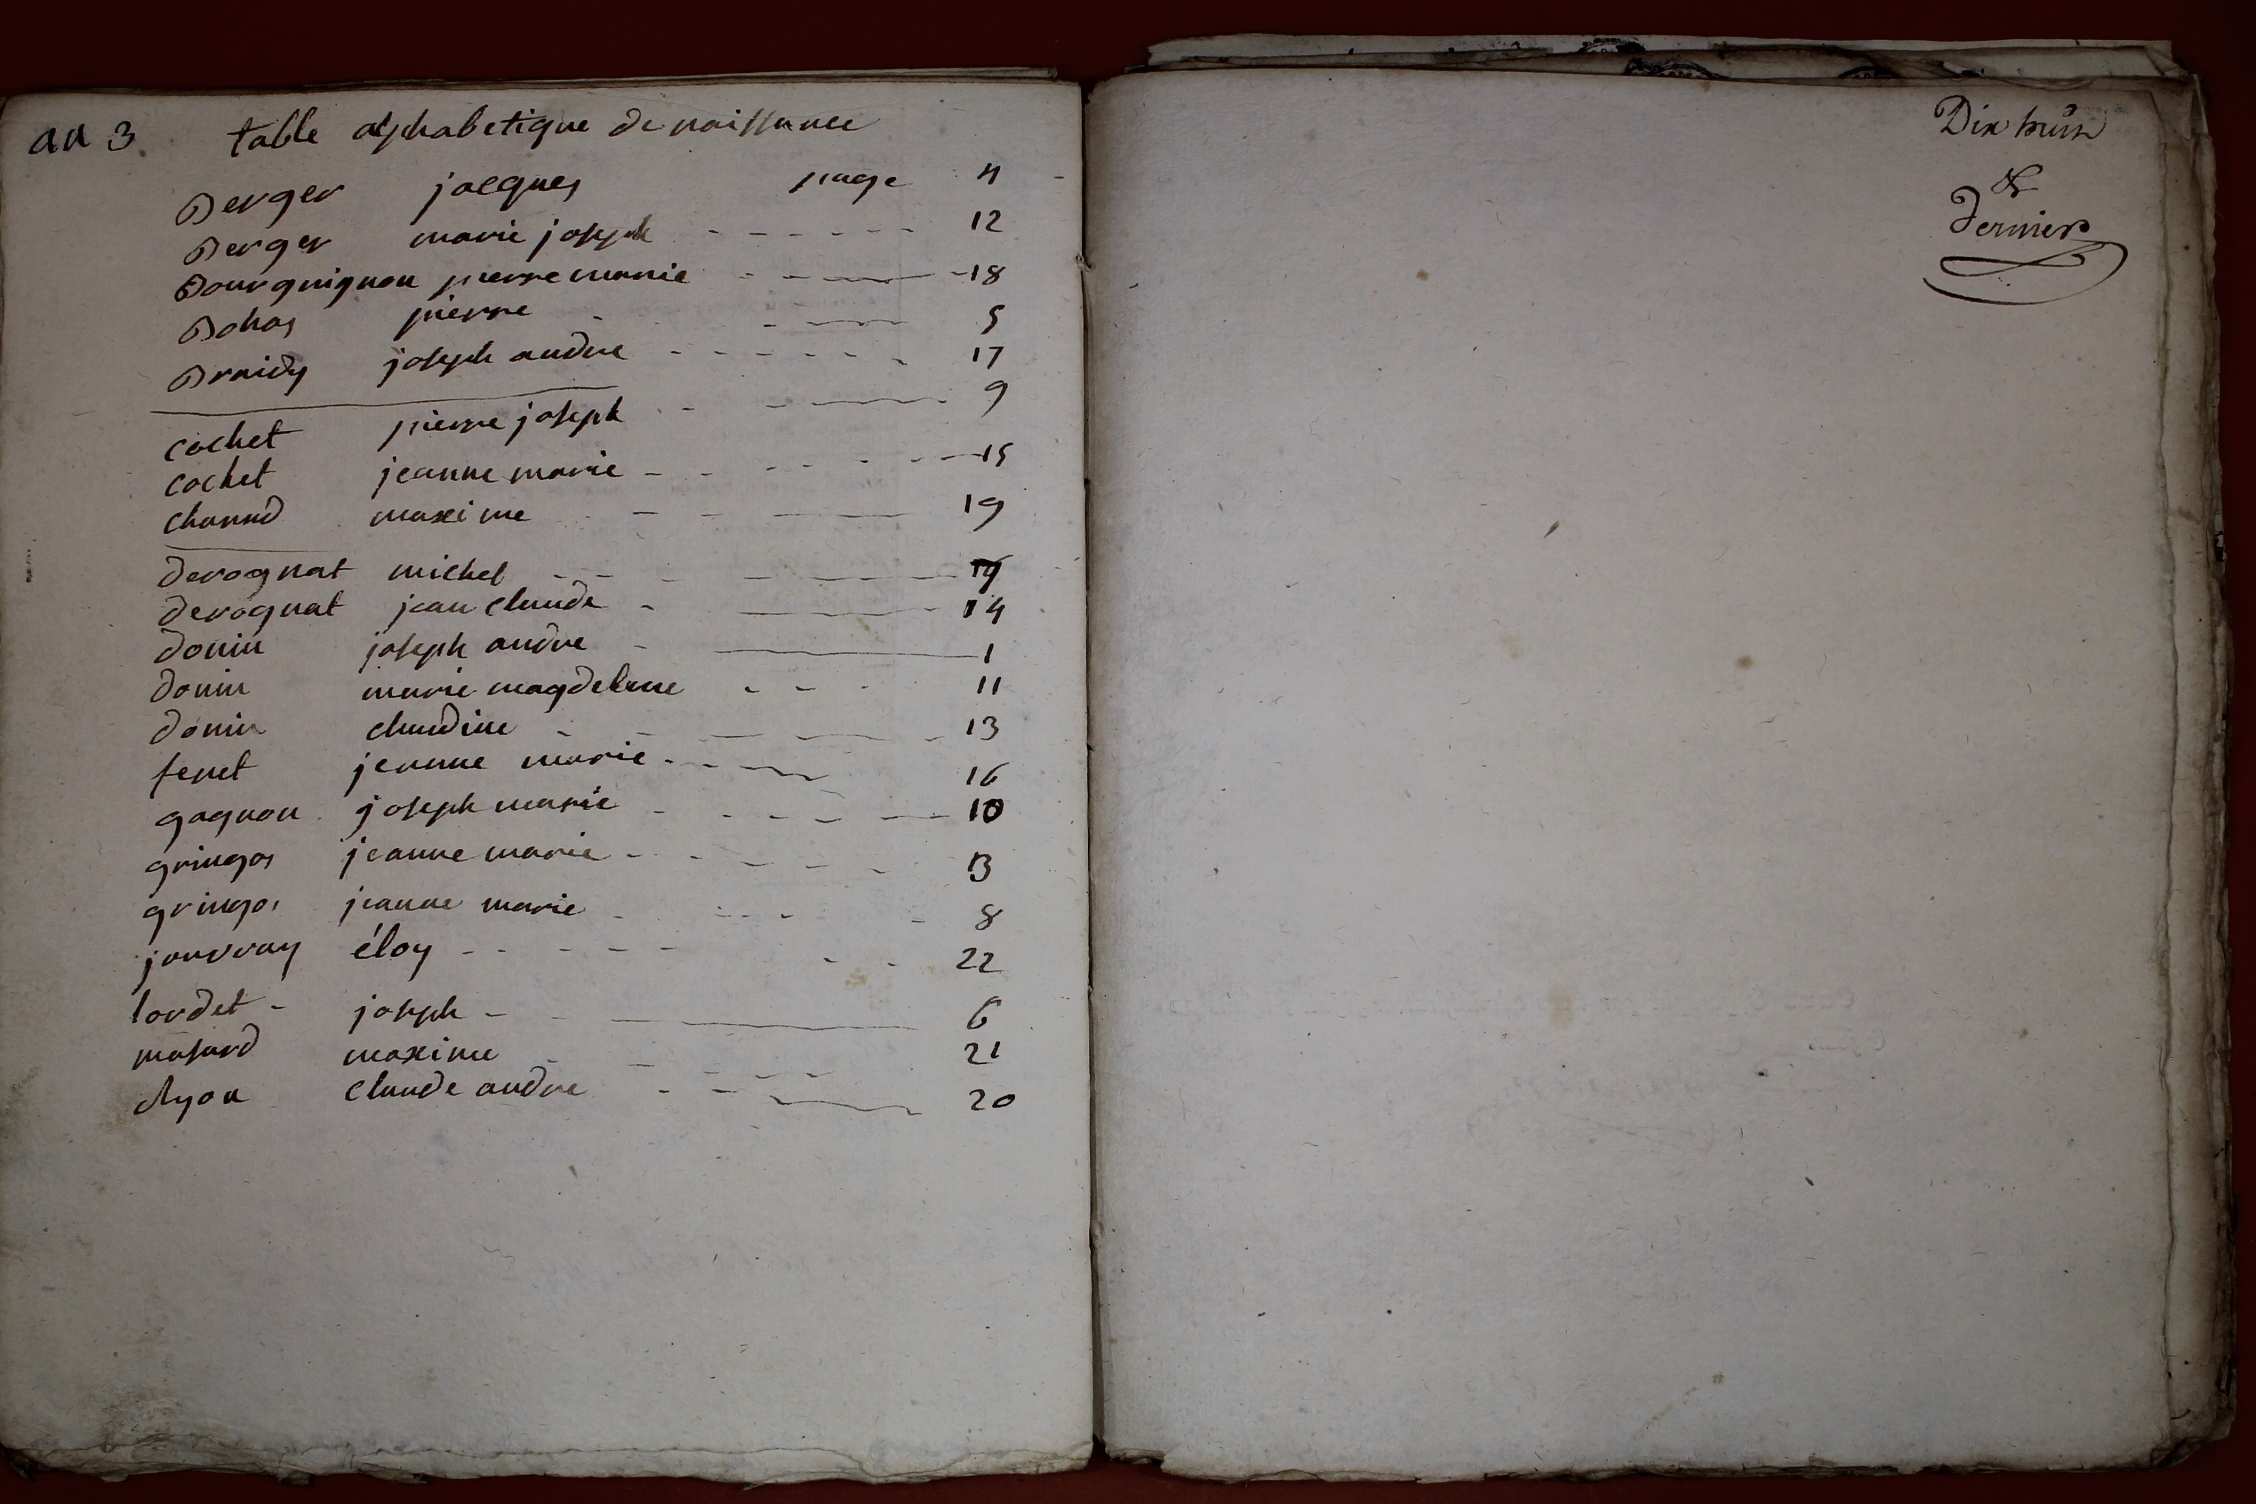 an 3 table alphabetique de naissance
Berger jacques page 4
Berger marie joseph 12
Bourguignon pierre marie 18
Bohas pierre 5
Braidy joseph andre 17
cochet pierre joseph 9
cochet jeanne marie 15
charnd maxime 19
derognat michel
derognat jean claude 14
donin joseph andre 1
donin marie magdelene 11
donin claudine 13
fenet jeanne marie 16
gagnon joseph marie 10
gringos jeanne marie 13
gringos jeanne marie 8
jouvray éloy 22
lordet joseph 6
masard maxime 21
claude andre 20
Dix huit
&
dernier